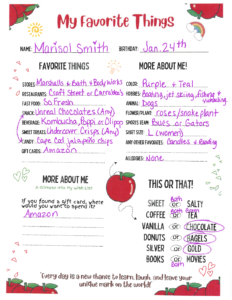 My Favorite Things
NAME: Marisol Smith BIRTHDAY: Jan. 24th
FAVORITE THINGS
STORES: Marshalls & Bath + Body Works
RESTAURANTS: Craft Street or Carrabbas
FAST FOOD: So Fresh
SNACK: Unreal Chocolates (Any)
BEVERAGE: Kombucha, Poppi or Olipop
SWEET TREATS: Undercover Crisps (Any)
CANDY: Cape Cod jalapeño chips
GIFT CARDS: Amazon
MORE ABOUT ME!
COLOR: Purple + Teal
HOBBIES: Boating, jet skiing, fishing +
ANIMAL: Dogs
FLOWER/PLANT: roses/snake plant
SPORTS TEAM: Bucs or Gators
SHIRT SIZE: L (women)
ANY OTHER FAVORITES: Candles + Reading
ALLERGIES: None
MORE ABOUT ME
If you found a gift card, where
would you want to spend it?
Amazon
THIS OR THAT!
SWEET or SALTY
Both
COFFEE or TEA
Both
VANILLA or CHOCOLATE
DONUTS or BAGELS
SILVER or GOLD
BOOKS or MOVIES
Both
"Every day is a new chance to learn, laugh, and leave your
unique mark on the world!"